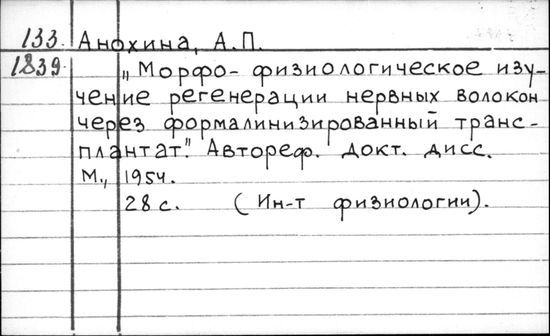 133. Анохина, А.П.
1839. „Морфо-физиологическое изу-
чение регенерации нервных волокон
через формалинизированный транс-
плантат." Автореф. докт. дисс.
М., 1954.
28 с. (Ин-т физиологии).